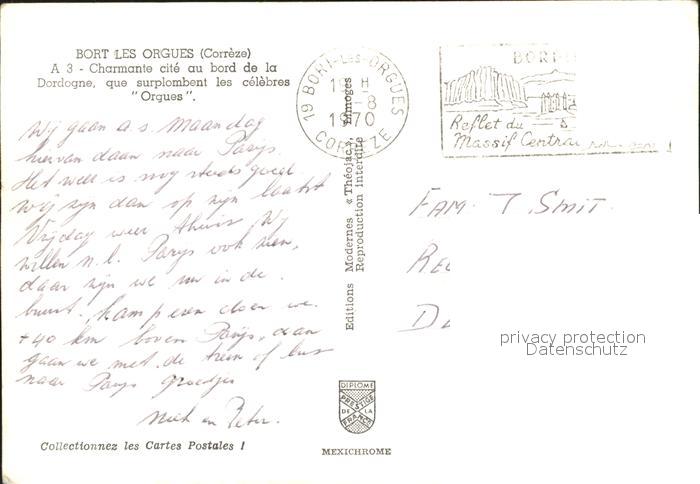 BORT LES ORGUES (Corrèze)
A 3 - Charmante cité au bord de la
Dordogne, que surplombent les célèbres
"Orgues".
Wij gaan a.s. Maandag
hiervan daan naar Parijs.
Het weer is nog steeds goed.
Wij zijn dan op zijn laatst
Vrijdag weer thuis Wij
willen n.l. Parijs ook zien,
daar zijn we nu in de
buurt, kamperen doen we
+40 km boven Parijs, dan
gaan we met de trein of bus
naar Parijs groetjes
en Peter.
Collectionnez les Cartes Postales !
Editions Modernes « Théojac », Limoges
Reproduction interdite
19 BORT-LES-ORGUES
H
-8
1970
CORREZE
BORT
Reflet du
Massif Central
FAM. T. SMIT.
privacy protection
Datenschutz
DIPLOME
PRESTIGE
DE LA
FRANCE
MEXICHROME